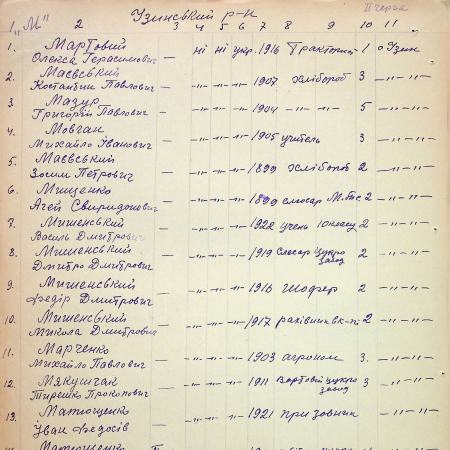 Узинський р-н
II черга
1 "М" 2 3 4 5 6 7 8 9 10 11
1. Мартовий
Олекса Герасимович — ні ні укр. 1916 Тракторист 1 о Узин
2. Маєвський
Костантин Павлович — -"- -"- -"- 1907 хлібороб 3 -"-"-
3. Мазур
Григорій Павлович — -"- -"- -"- 1904 -"- 5 -"-"-
4. Мовчан
Михайло Іванович — -"- -"- -"- 1905 учитель 3 -"-"-
5. Маєвський
Зосим Петрович — -"- -"- -"- 1899 хлібороб 2 -"-"-
6. Мищенко
Агей Свиридонович — -"- -"- -"- 1899 слюсар М.Т.С 2 -"-"-
7. Мишенський
Василь Дмитрович — -"- -"- -"- 1922 учень 10 класу 2 -"-"-
8. Мишенський
Дмитро Дмитрович — -"- -"- -"- 1919 Слюсар цукро завод 2 -"-"-
9. Мишенський
Федір Дмитрович — -"- -"- -"- 1916 Шофер 2 -"-"-
10. Мишенський
Микола Дмитрович — -"- -"- -"- 1917 рахівник 2 -"-"-
11. Марченко
Михайло Павлович — -"- -"- -"- 1903 агроном 3. -"-"-
12. Мякушчак
Прокопович — -"- -"- -"- 1911 Вартовий цукро завод 3 -"-"-
13. Матющенко
Іван Федосів — -"- -"- -"- 1921 призовник -"-"-
Матющенко